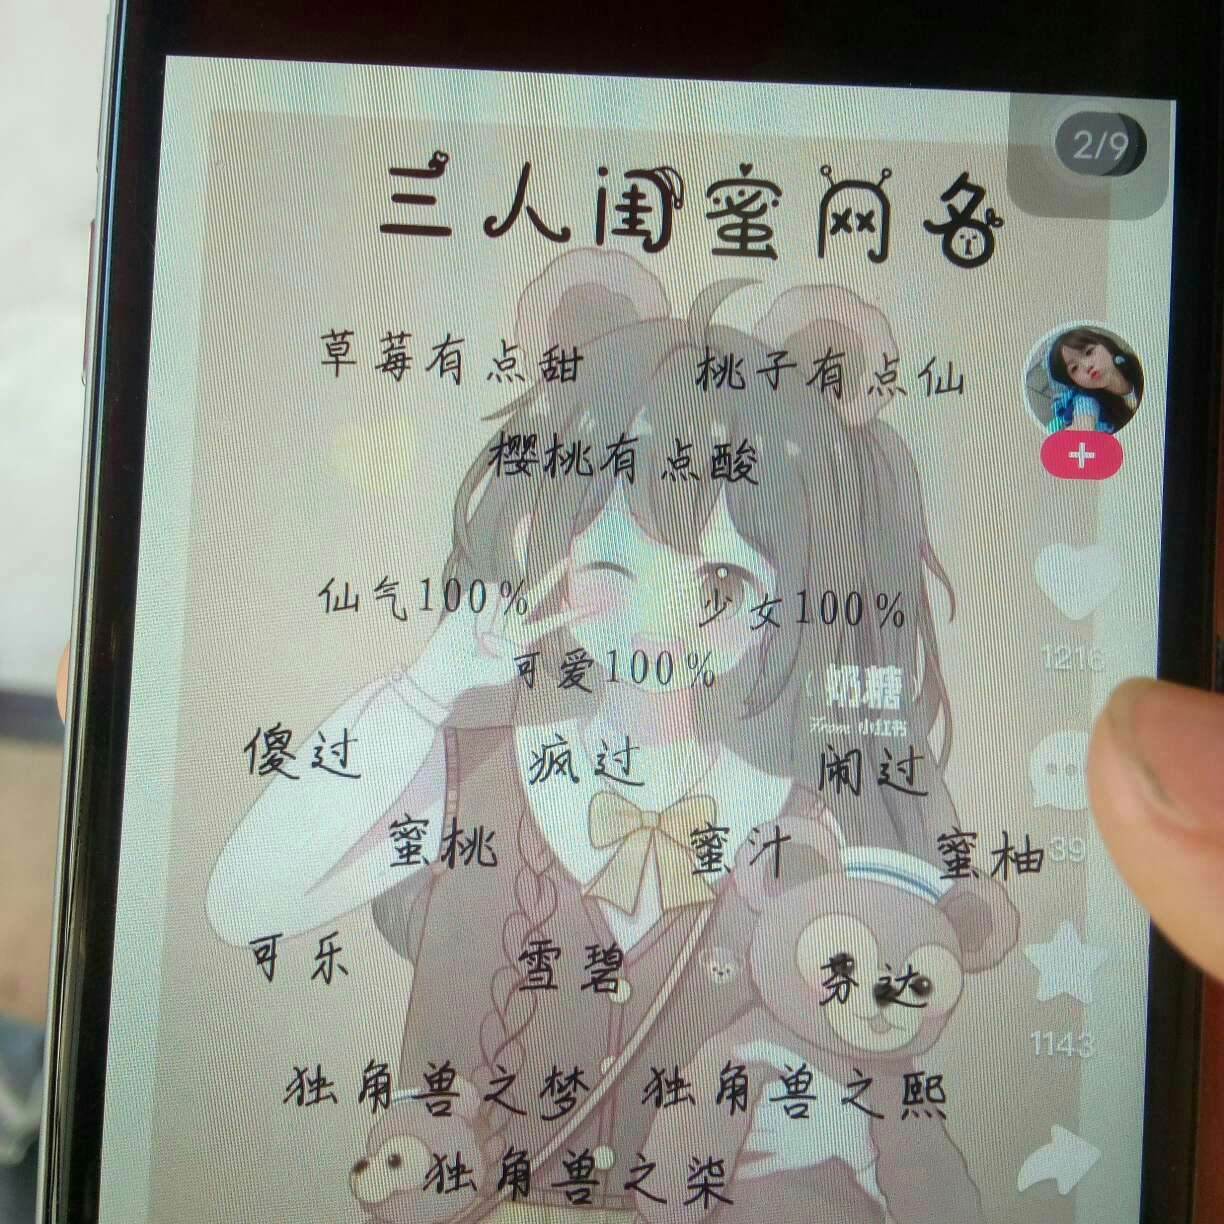 2/9
三人闺蜜网名
草莓有点甜 桃子有点仙
樱桃有点酸
仙气100% 少女100%
可爱100%
1216
奶糖
From 小红书
傻过 疯过 闹过
蜜桃 蜜汁 蜜柚
39
可乐 雪碧 芬达
1143
独角兽之梦 独角兽之熙
独角兽之柒